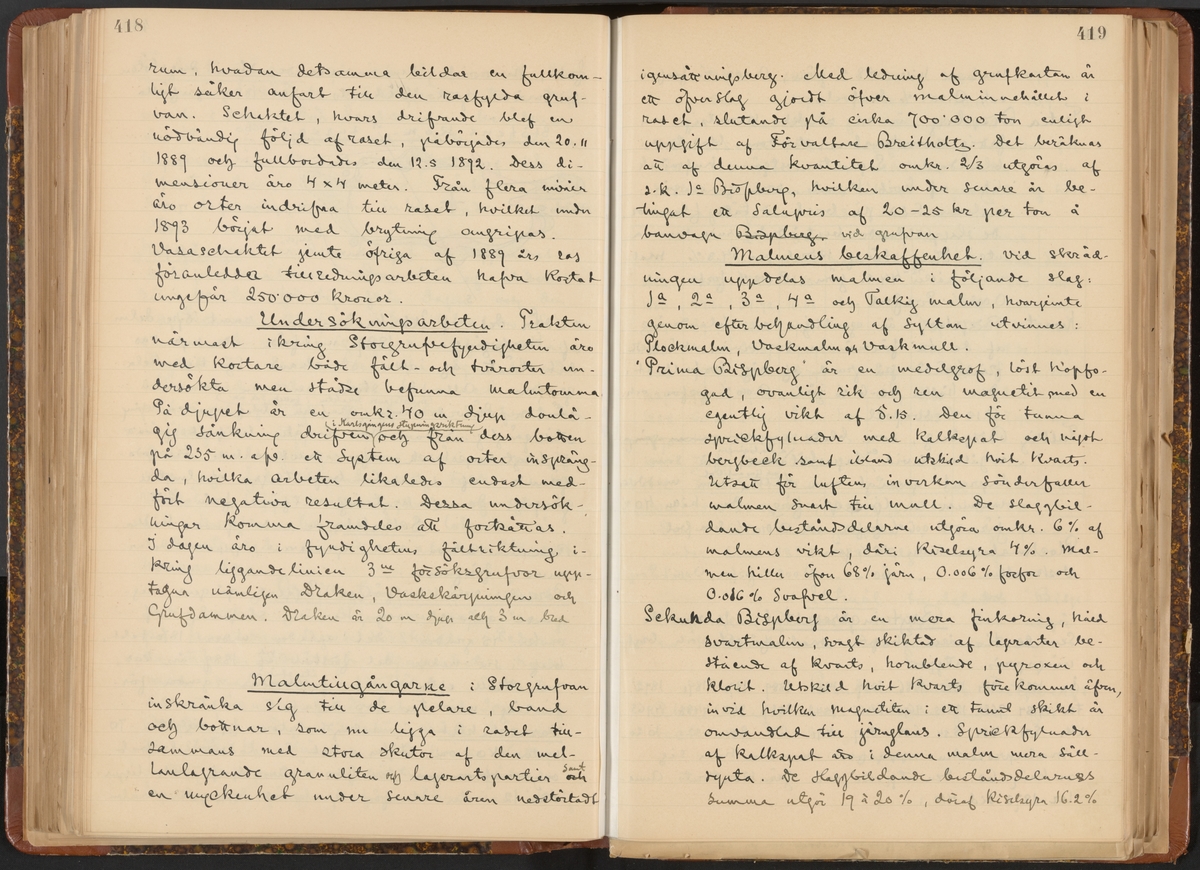 418
rum, hvadan detsamma bildar en fullkom-
ligt säker anfart till den rasfyllda gruf-
van. Schaktet, hvars drifvande blef en
nödvändig följd af raset, påbörjades den 20.11
1889 och fullbordades den 12.5 1892. Dess di-
mensioner äro 4x4 meter. Från flera nivåer
äro orter indrifna till raset, hvilket under
1893 börjat med brytning angripas.
Vasaschaktet jemte öfriga af 1889 års ras
föranledda tillredningsarbeten hafva kostat
ungefär 250'000 kronor.
Undersökningsarbeten. Trakten
närmast ikring Storgrufvefyndigheten äro
med kortare både fält- och tvärorter un-
dersökta men städse befunna malmtomma
På djupet är en omkr. 40 m djup donlä-
i Karlsgångens stupningsriktning
gig sänkning drifven och från dess botten
på 235 m. afv. ett system af orter inspräng-
da, hvilka arbeten likaledes endast med-
fört negativa resultat. Dessa undersök-
ningar komma framdeles att fortsättas.
I dagen äro i fyndighetens fältriktning i-
kring liggandelinien 3ne försöksgrufvor upp-
tagna nämligen Draken, Vaskskärpningen och
Grufdammen. Draken är 20 m djup och 3 m bred
Malmtillgångarne i Storgrufvan
inskränka sig till de pelare, band
och bottnar, som nu ligga i raset till-
sammans med stora skutor af den mel-
lanlagrande granuliten och lagerartspartier samt
en myckenhet under senare åren nedstörtadt
419
igensättningsberg. Med ledning af grufkartan är
ett öfverslag gjordt öfver malminnehållet i
raset, slutande på cirka 700'000 ton enligt
uppgift af Förvaltare Breitholtz. Det beräknas
att af denna kvantitet omkr. 2/3 utgöres af
s.k. 1a Bispberg, hvilken under senare år be-
tingat ett salupris af 20-25 kr per ton å
banvagn Bispberg vid grufvan
Malmens beskaffenhet. Vid skräd-
ningen uppdelas malmen i följande slag:
1a, 2a, 3a, 4a och Talkig malm, hvarjemte
genom efterbehandling af syltan utvinnes:
Plockmalm, Vaskmalm och Vaskmull.
'Prima Bispberg' är en medelgrof, löst hopfo-
gad, ovanligt rik och ren magnetit med en
egentlig vikt af 5.15. Den för tunna
sprickfyllnader med kalkspat och något
bergbeck samt ibland utskild hvit kvarts.
Utsatt för luftens inverkan sönderfaller
malmen snart till mull. De slaggbil-
dande beståndsdelarne utgöra omkr. 6% af
malmens vikt, däri kiselsyra 4%. Mal-
men håller öfver 68% järn, 0.006% fosfor och
0.016% svafvel.
Sekunda Bispberg är en mera finkornig, hård
svartmalm, svagt skiktad af lagerarter be-
stående af kvarts, hornblende, pyroxen och
klorit. Utskild hvit kvarts förekommer äfven,
invid hvilken magnetiten i ett tunnt skikt är
omvandlad till järnglans. Sprickfyllnader
af kalkspat äro i denna malm mera säll-
synta. De slaggbildande beståndsdelarnes
summa utgör 19 à 20%, däraf kiselsyra 16.2%